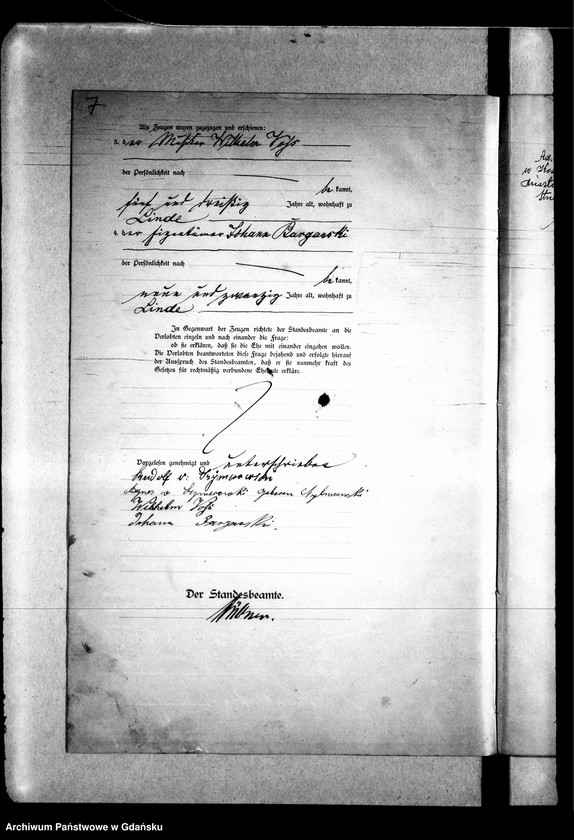 7
Als Zeugen waren zugezogen und erschienen:
3. der Musiker Wilhelm Voß
der Persönlichkeit nach
be kannt,
fünf und dreißig Jahre alt, wohnhaft zu
Linde
4. der Eigentümer Johann Barganski
der Persönlichkeit nach
be kannt,
neun und zwanzig Jahre alt, wohnhaft zu
Linde
In Gegenwart der Zeugen richtete der Standesbeamte an die
Verlobten einzeln und nach einander die Frage:
ob sie erklären, daß sie die Ehe mit einander eingehen wollen.
Die Verlobten beantworteten diese Frage bejahend und erfolgte hierauf
der Ausspruch des Standesbeamten, daß er sie nunmehr kraft des
Gesetzes für rechtmäßig verbundene Eheleute erkläre.
Vorgelesen, genehmigt und unterschrieben
Rudolf v.
Agnes v geboren
Wilhelm Voß
Johann Barganski.
Der Standesbeamte.
Archiwum Państwowe w Gdańsku